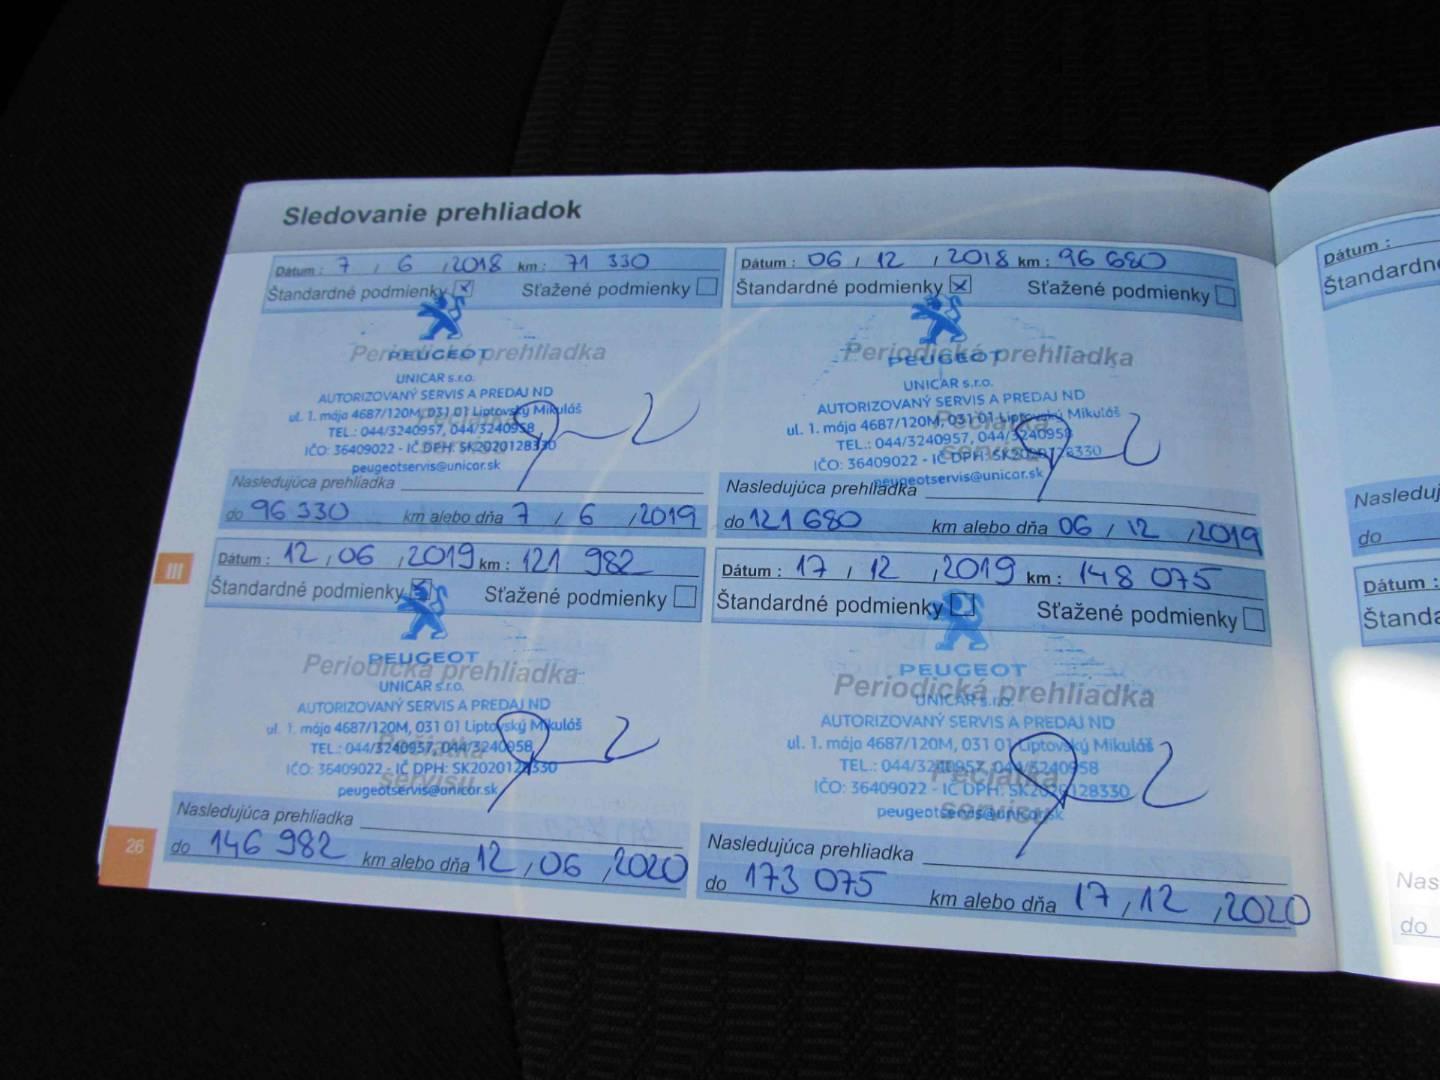 Sledovanie prehliadok
Dátum : 7 / 6 , 2018 km : 71 330
Štandardné podmienky Sťažené podmienky
Periodická prehliadka
PEUGEOT
UNICAR s.r.o.
AUTORIZOVANÝ SERVIS A PREDAJ ND
ul. 1. mája 4687/120M, 031 01 Liptovský Mikuláš
Pečiatka
TEL.: 044/3240957, 044/3240958
servisu
IČO: 36409022 - IČ DPH: SK2020128330
peugeotservis@unicar.sk
Nasledujúca prehliadka
do 96 330 km alebo dňa 7 / 6 , 2019
Dátum : 06 / 12 , 2018 km : 96 680
Štandardné podmienky Sťažené podmienky
Periodická prehliadka
PEUGEOT
UNICAR s.r.o.
AUTORIZOVANÝ SERVIS A PREDAJ ND
ul. 1. mája 4687/120M, 031 01 Liptovský Mikuláš
Pečiatka
TEL.: 044/3240957, 044/3240958
servisu
IČO: 36409022 - IČ DPH: SK2020128330
peugeotservis@unicar.sk
Nasledujúca prehliadka
do 121 680 km alebo dňa 06 / 12 , 2019
III
Dátum : 12 , 06 , 2019 km : 121 982
Štandardné podmienky Sťažené podmienky
PEUGEOT
Periodická prehliadka
UNICAR s.r.o.
AUTORIZOVANÝ SERVIS A PREDAJ ND
ul. 1. mája 4687/120M, 031 01 Liptovský Mikuláš
Pečiatka
TEL.: 044/3240957, 044/3240958
IČO: 36409022 - IČ DPH: SK2020128330
servisu
peugeotservis@unicar.sk
Nasledujúca prehliadka
do 146 982 km alebo dňa 12 , 06 , 2020
Dátum : 17 / 12 , 2019 km : 148 075
Štandardné podmienky Sťažené podmienky
PEUGEOT
Periodická prehliadka
UNICAR s.r.o.
AUTORIZOVANÝ SERVIS A PREDAJ ND
ul. 1. mája 4687/120M, 031 01 Liptovský Mikuláš
TEL.: 044/3240957, 044/3240958
Pečiatka
IČO: 36409022 - IČ DPH: SK2020128330
servisu
peugeotservis@unicar.sk
Nasledujúca prehliadka
do 173 075 km alebo dňa 17 , 12 , 2020
26
Dátum :
Štandardné
Nasleduj
do
Dátum :
Štanda
Nas
do